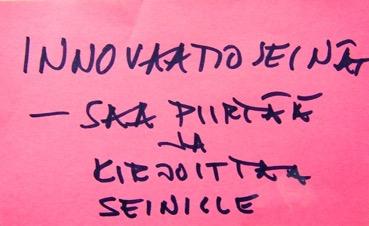 INNOVAATIOSEINÄT
— SAA PIIRTÄÄ
JA
KIRJOITTAA
SEINILLE